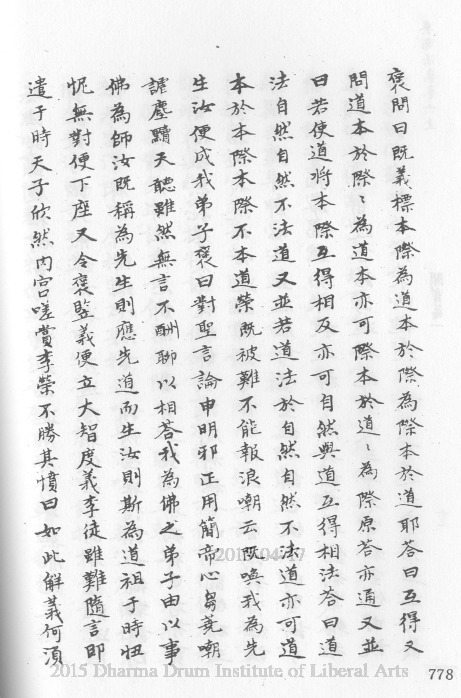 褒問曰既義標本際為道本於際為際本於道耶答曰互得又
問道本於際〻為道本亦可際本於道〻為際原答亦通又並
曰若使道將本際互得相反亦可自然與道互得相法答曰道
法自然自然不法道又並若道法於自然自然不法道亦可道
本於本際本際不本道榮既被難不能報浪嘲云既喚我為先
生汝便成我弟子褒曰對聖言論申明邪正用簡帝心芻蕘嘲
謔塵黷天聽雖然無言不酬聊以相答我為佛之弟子由以事
佛為師汝既稱為先生則應先道而生汝則斯為道祖于時忸
怩無對便下座又令褒豎義便立大智度義李徒雖難隨言即
遣于時天子欣然內宮嗟賞李榮不勝其憤曰如此解義何須
778
2015 Dharma Drum Institute of Liberal Arts